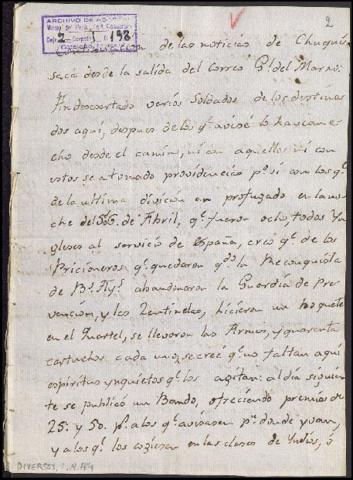 2
ARCHIVO DE AS
2 198
Continuacion de las noticias de Chuquis
saca desde la salida del Correo Gl. del Marzo.
Han descartado varios Soldados de los destina
dos aqui, despues de los qe. avisé lo havian e
cho desde el camin, ni con aquellos ni con
estos se a tomado providencia pr. si con los qe.
de la ultima division an profugado en la no
che del 5 de Abril, qe. fueron ocho, todos Yn
gleses al servicio de España, creo qe. de los
Pricioneros qe. quedaron qdo. la Reconquista
de Bs. Ays. abandonaron la Guardia de Pre
vencion, y los Zentinelas, hicieron un boquete
en el Quartel, se llevaron las Armas, y quarenta
cartuchos cada uno, se cree qe. no faltan aqui
espiritus ynquietos qe. los agitan: al dia siguien
te se publicó un Bando, ofreciendo premios de
25. y 50. ps. a los qe. avisasen pr. donde yvan,
y a los qe. los cogiesen en las clases de Yndios, ó
DIVERSOS,